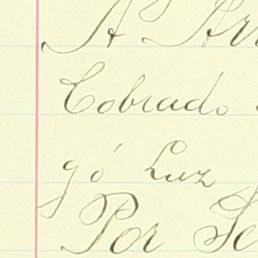 A Ar
Cobrado
gó Luz
Por Se